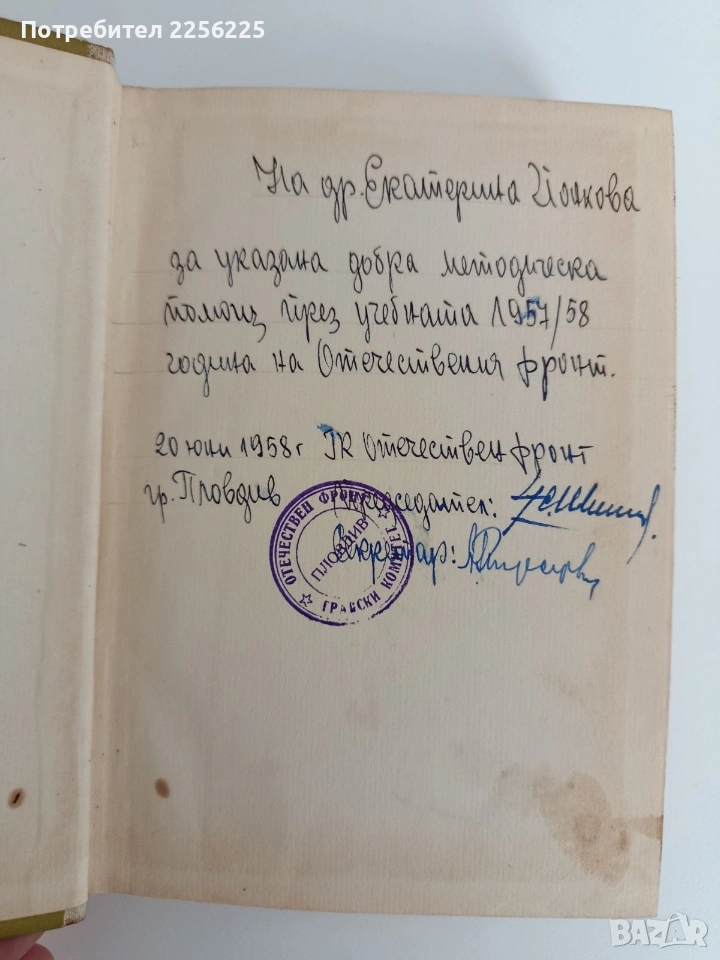 Потребител 2256225
На др. Екатерина Йонкова
за указана добра методическа
помощ през учебната 1957/58
година на Отечествения фронт.
20 юни 1958 г ГК Отечествен фронт
гр. Пловдив Председател:
Секретар:
ОТЕЧЕСТВЕН ФРОНТ ☆ ГРАДСКИ КОМИТЕТ ☆
ПЛОВДИВ
BAZAR